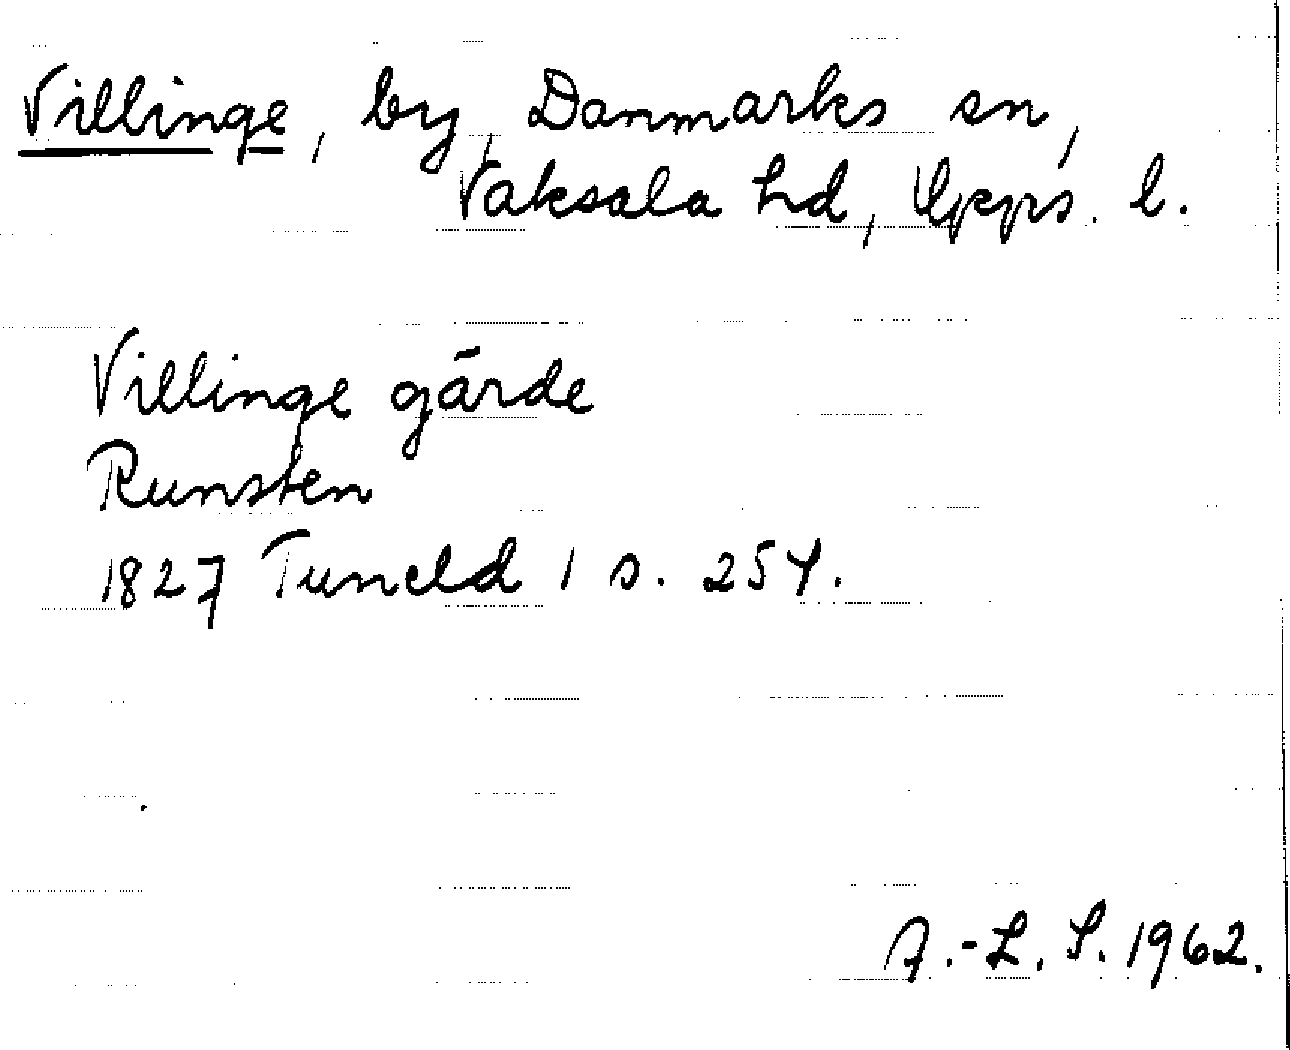 Villinge, by, Danmarks sn,
Vaksala hd, Upps. l.
Villinge gärde
Runsten
1827 Tuneld 1 s. 254.
A.-L. S. 1962.